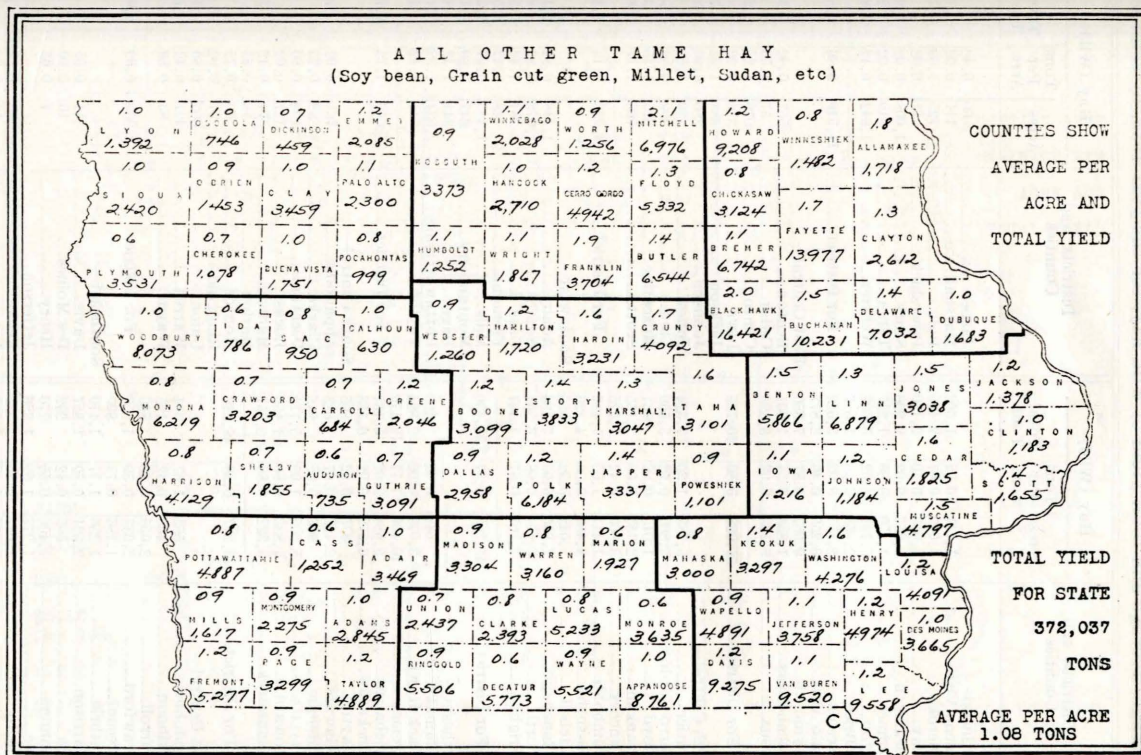 ALL OTHER TAME HAY
(Soy bean, Grain cut green, Millet, Sudan, etc)
COUNTIES SHOW
AVERAGE PER
ACRE AND
TOTAL YIELD
1.0 LYON 1.392
1.0 OSCEOLA 746
0.7 DICKINSON 459
1.2 EMMET 2,085
0.9 KOSSUTH 3373
1.1 WINNEBAGO 2,028
0.9 WORTH 1.256
2.1 MITCHELL 6,976
1.2 HOWARD 9,208
0.8 WINNESHIEK 1.482
1.8 ALLAMAKEE 1,718
1.0 SIOUX 2.420
0.9 O'BRIEN 1.453
1.0 CLAY 3.459
1.1 PALO ALTO 2.300
1.0 HANCOCK 2,710
1.2 CERRO GORDO 4.942
1.3 FLOYD 5.332
0.8 CHICKASAW 3.124
1.7 FAYETTE 13.977
1.3 CLAYTON 2,612
0.6 PLYMOUTH 3.531
0.7 CHEROKEE 1.078
1.0 BUENA VISTA 1.751
0.8 POCAHONTAS 999
1.1 HUMBOLDT 1.252
1.1 WRIGHT 1.867
1.9 FRANKLIN 3.704
1.4 BUTLER 6.544
1.1 BREMER 6.742
1.0 WOODBURY 8.073
0.6 IDA 786
0.8 SAC 950
1.0 CALHOUN 630
0.9 WEBSTER 1.260
1.2 HAMILTON 1,720
1.6 HARDIN 3.231
1.7 GRUNDY 4.092
2.0 BLACK HAWK 16,421
1.5 BUCHANAN 10,231
1.4 DELAWARE 7.032
1.0 DUBUQUE 1.683
0.8 MONONA 6,219
0.7 CRAWFORD 3.203
0.7 CARROLL 684
1.2 GREENE 2.046
1.2 BOONE 3.099
1.4 STORY 3.833
1.3 MARSHALL 3.047
1.6 TAMA 3.101
1.5 BENTON 5,866
1.3 LINN 6,879
1.5 JONES 3,038
1.2 JACKSON 1.378
1.0 CLINTON 1,183
0.8 HARRISON 4.129
0.7 SHELBY 1.855
0.6 AUDUBON 735
0.7 GUTHRIE 3,091
0.9 DALLAS 2.958
1.2 POLK 6,184
1.4 JASPER 3.337
0.9 POWESHIEK 1,101
1.1 IOWA 1.216
1.2 JOHNSON 1,184
1.6 CEDAR 1.825
1.4 SCOTT 1.655
1.5 MUSCATINE 4.797
0.8 POTTAWATTAMIE 4.887
0.6 CASS 1,252
1.0 ADAIR 3.469
0.9 MADISON 3.304
0.8 WARREN 3.160
0.6 MARION 1.927
0.8 MAHASKA 3.000
1.4 KEOKUK 3.297
1.6 WASHINGTON 4.276
1.2 LOUISA 4.091
0.9 MILLS 1.617
0.9 MONTGOMERY 2,275
1.0 ADAMS 2.845
0.7 UNION 2.437
0.8 CLARKE 2.393
0.8 LUCAS 5.233
0.6 MONROE 3.635
0.9 WAPELLO 4.891
1.1 JEFFERSON 3.758
1.2 HENRY 4974
1.0 DES MOINES 3.665
1.2 FREMONT 5.277
0.9 PAGE 3,299
1.2 TAYLOR 4.889
0.9 RINGGOLD 5,506
0.6 DECATUR 5.773
0.9 WAYNE 5,521
1.0 APPANOOSE 8.761
1.2 DAVIS 9.275
1.1 VAN BUREN 9.520
1.2 LEE 9.558
TOTAL YIELD
FOR STATE
372,037
TONS
C
AVERAGE PER ACRE
1.08 TONS